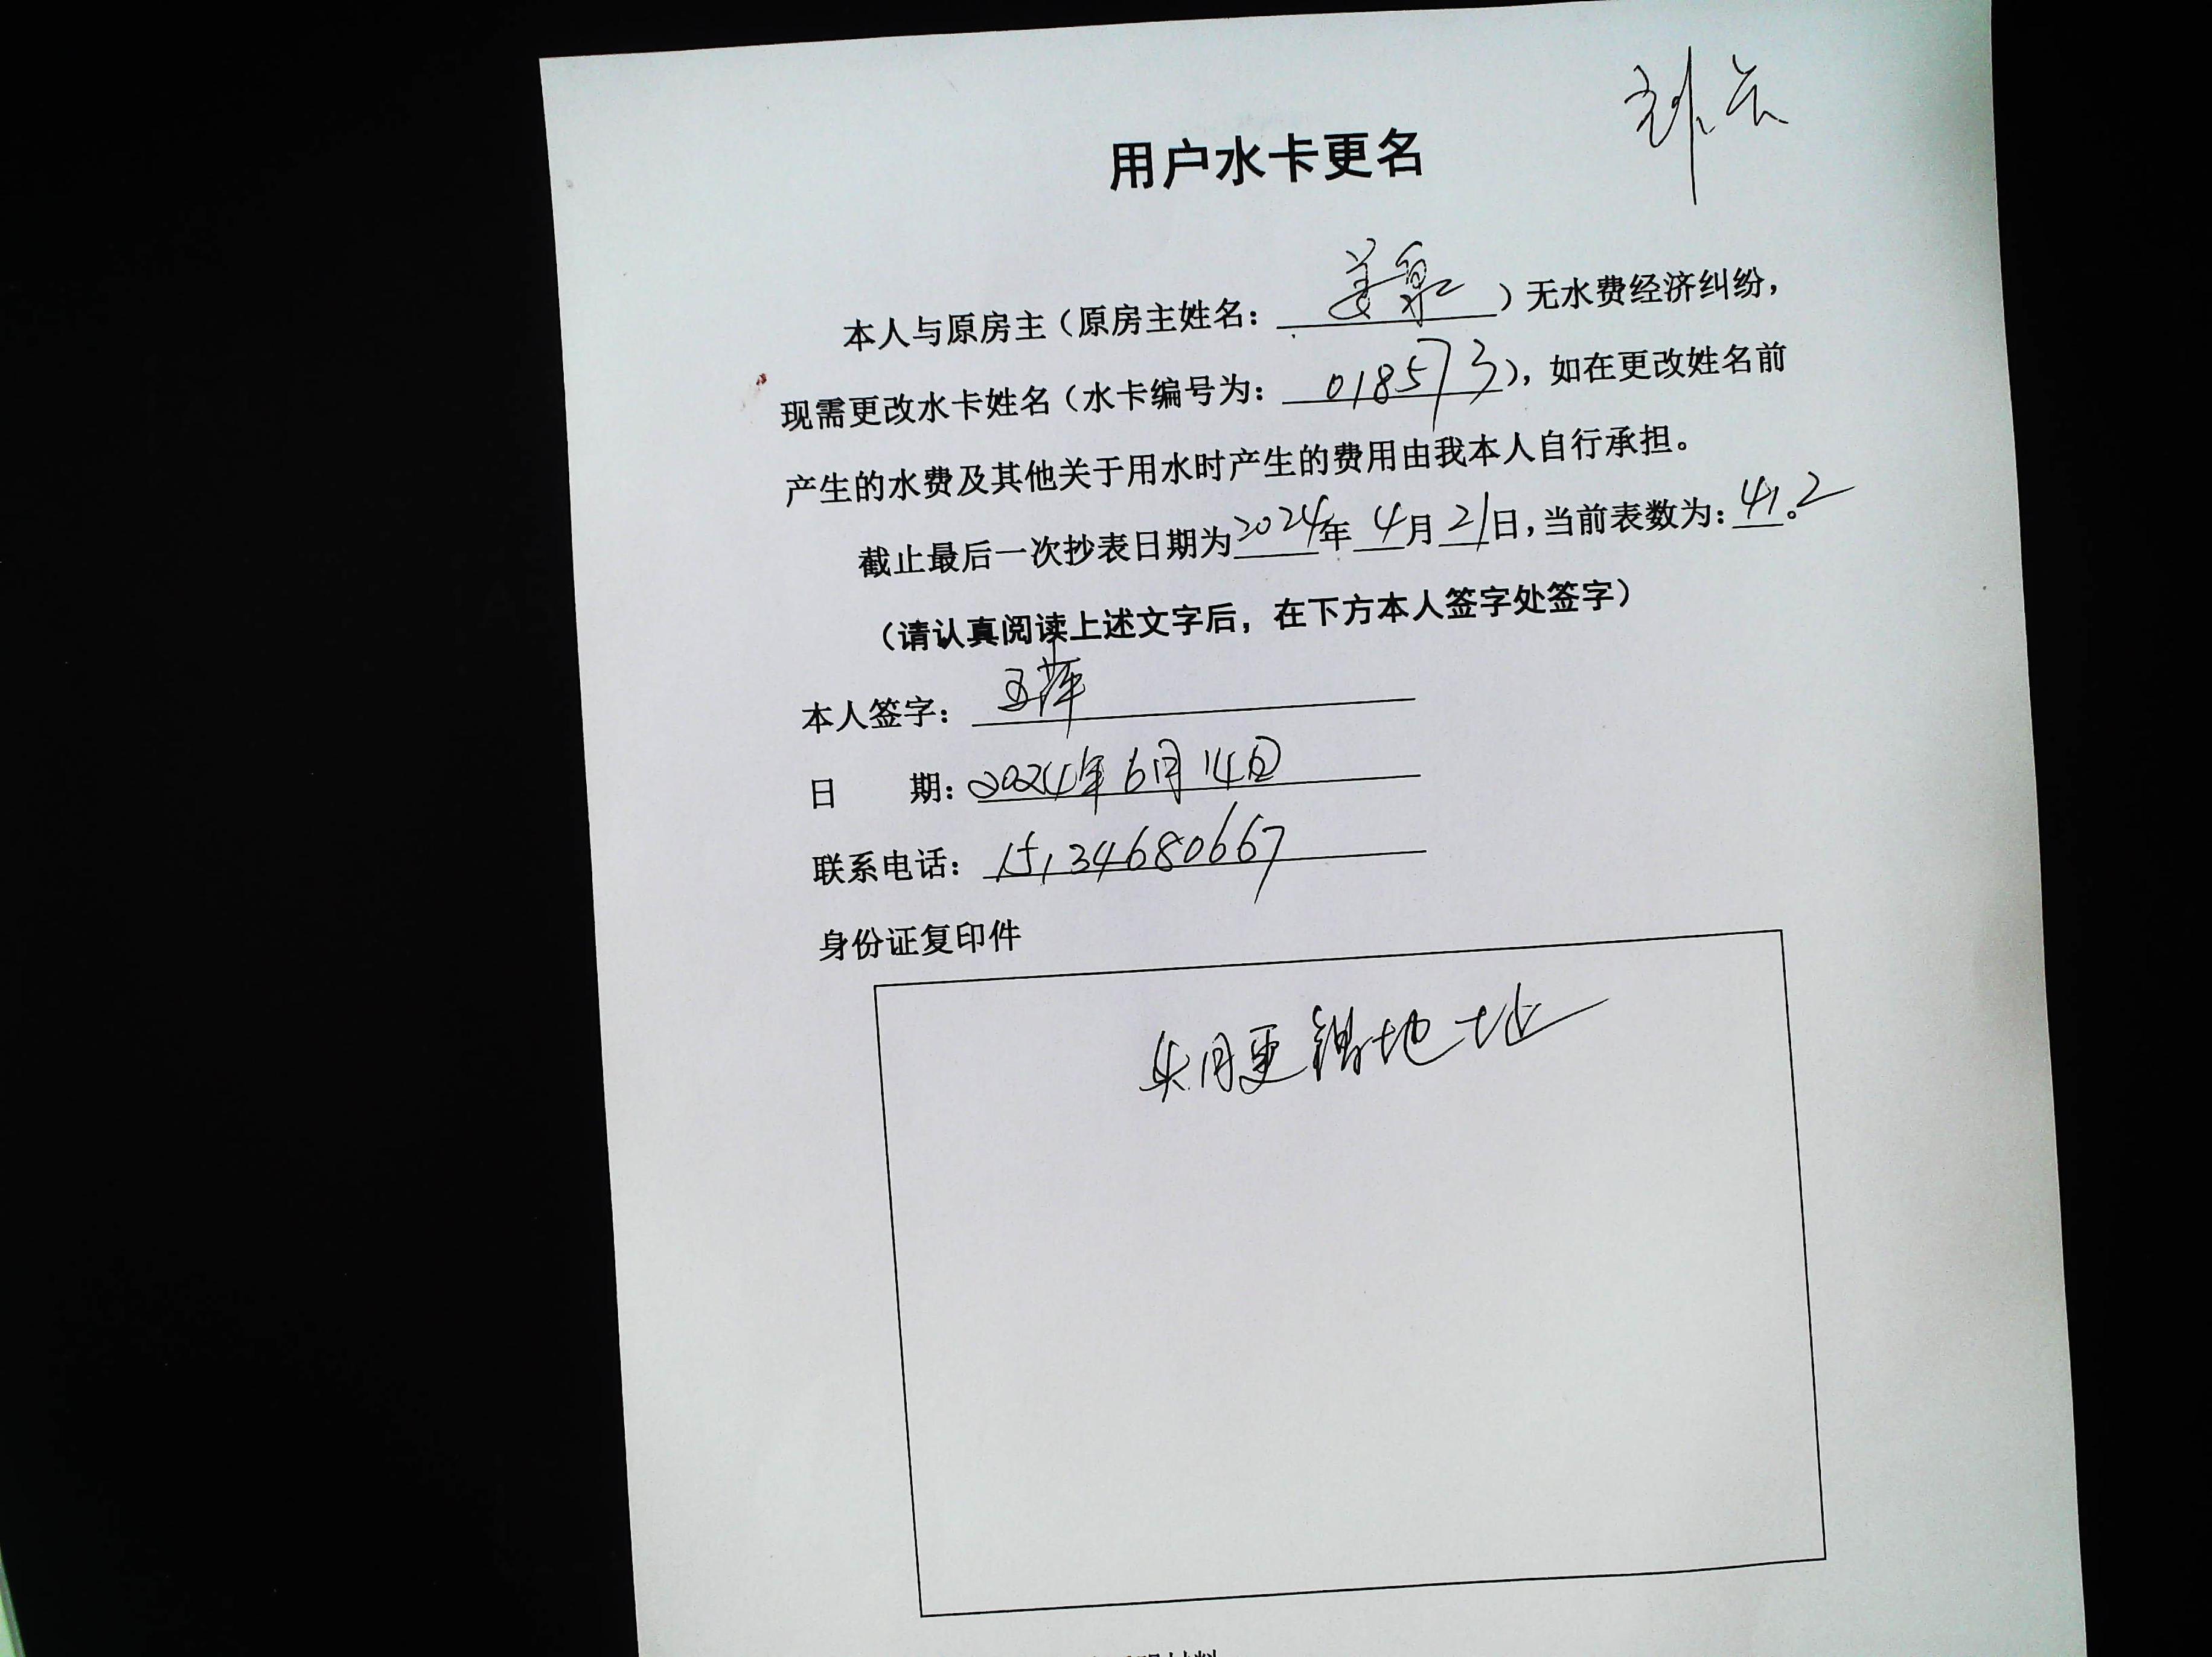 用户水卡更名
本人与原房主（原房主姓名：姜泉）无水费经济纠纷，
现需更改水卡姓名（水卡编号为：018573），如在更改姓名前
产生的水费及其他关于用水时产生的费用由我本人自行承担。
截止最后一次抄表日期为2024年4月21日，当前表数为：412。
（请认真阅读上述文字后，在下方本人签字处签字）
本人签字：王萍
日　　期：2024年6月14日
联系电话：15134680667
身份证复印件
地址